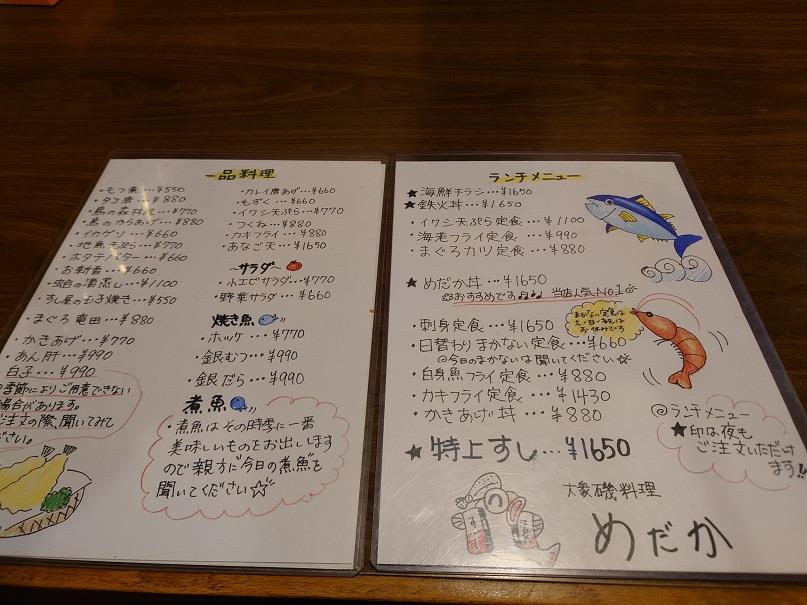 一品料理
・もつ煮…¥550
・タコ唐…¥880
・鳥のからあげ…¥880
・イカゲソ…¥660
・地魚天ぷら…¥770
・ホタテバター…¥660
・お新香…¥660
の酒蒸し…¥1100
・すし屋の玉子焼き…¥550
・まぐろ竜田…¥880
・かきあげ…¥770
・あん肝…¥990
・白子…¥990
季節によりご用意できない
場合があります。
ご注文の際、聞いてみて
ださい。
・カレイ唐あげ…¥660
・もずく…¥660
・イワシ天ぷら…¥770
・つくね…¥880
・カキフライ…¥880
・あなご天…¥1650
〜サラダ〜
・小エビサラダ…¥770
・野菜サラダ…¥660
焼き魚
・ホッケ…¥770
・銀むつ…¥990
・銀だら…¥990
煮魚
・煮魚はその時季に一番
美味しいものをお出しします
ので親方に"今日の煮魚"を
聞いてください☆
ランチメニュー
★海鮮チラシ…¥1650
★鉄火丼…¥1650
・イワシ天ぷら定食…¥1100
・海老フライ定食…¥990
・まぐろカツ定食…¥880
★めだか丼…¥1650
おすすめです♪♪ 当店人気No1
まかない定食は
土・日・祝は
お休みです
・刺身定食…¥1650
・日替わりまかない定食…¥660
◎今日のまかないは聞いてください☆
・白身魚フライ定食…¥880
・カキフライ定食…¥1430
・かきあげ丼…¥880
★特上すし…¥1650
◎ランチメニュー
★印は夜も
ご注文いただけ
ます!!
大衆磯料理
めだか